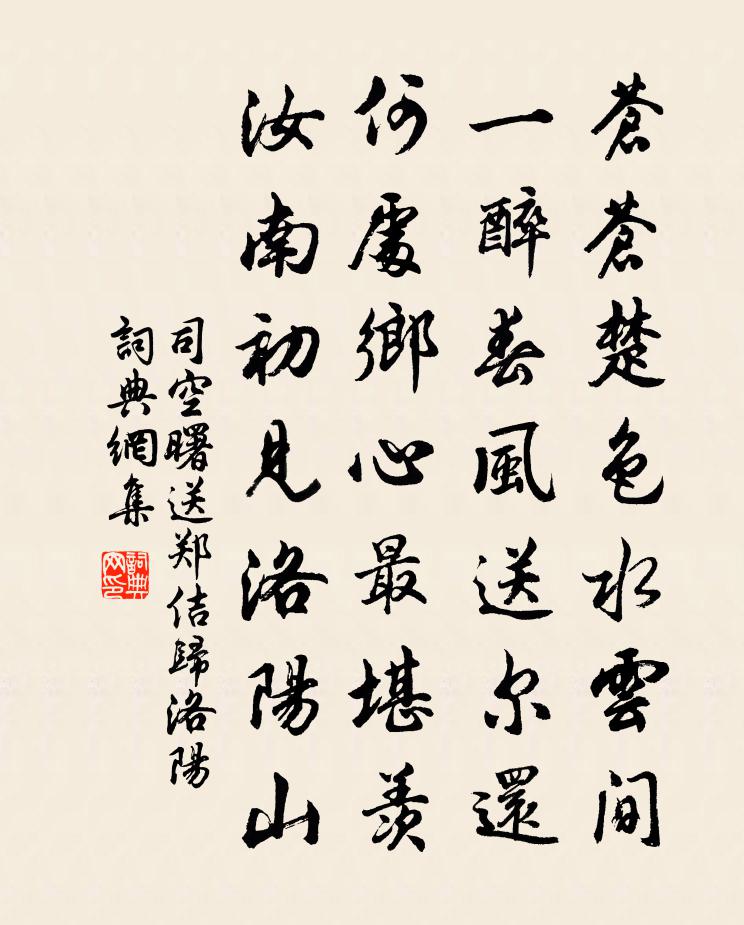 蒼蒼楚色水雲間
一醉春風送尔還
何處鄉心最堪羨
汝南初見洛陽山
司空曙送郑佶歸洛陽
詞典網集
詞典网印